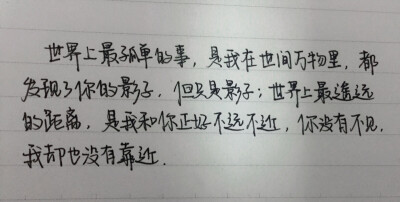 世界上最孤单的事，是我在世间万物里，都
发现了你的影子，但只是影子；世界上最遥远
的距离，是我和你正好不远不近，你没有不见，
我却也没有靠近.